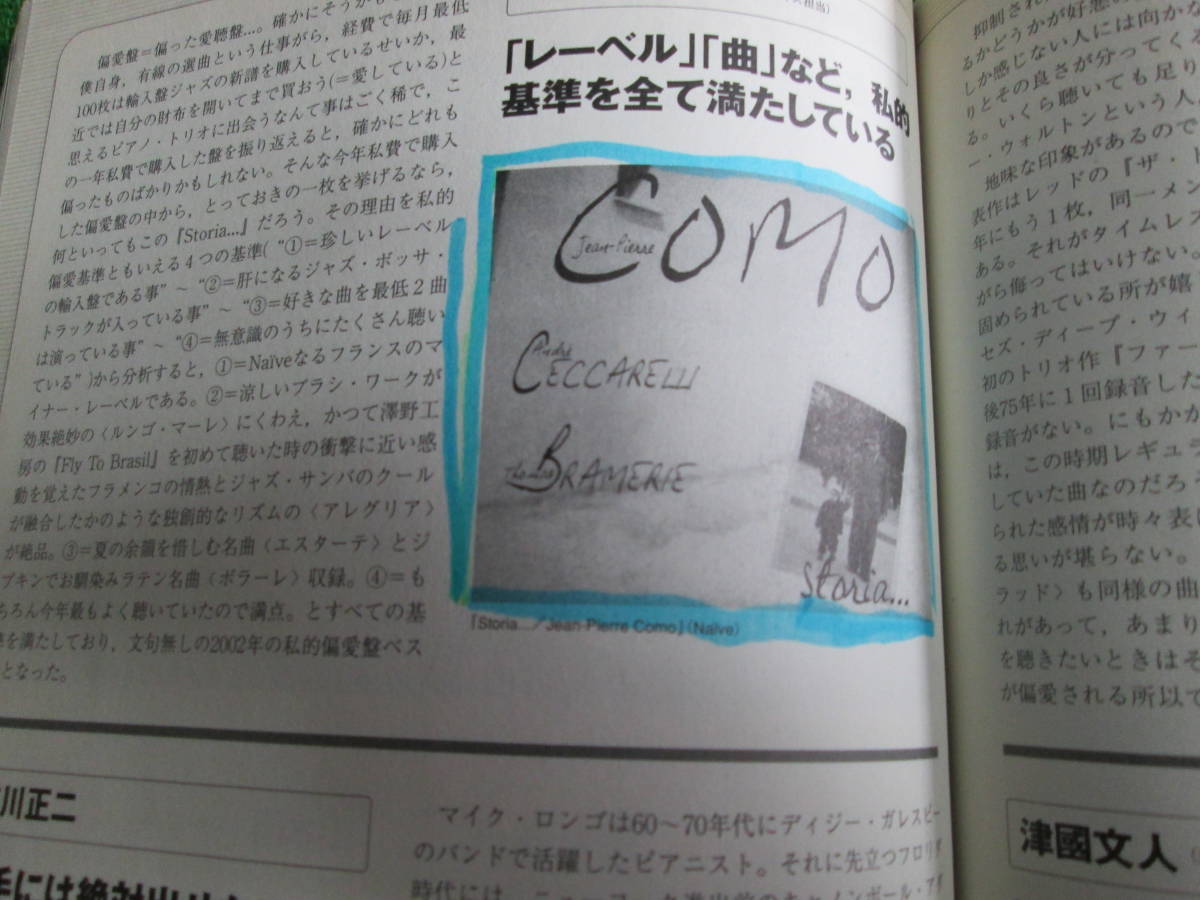 偏愛盤=偏った愛聴盤…。確かにそうかも
僕自身，有線の選曲という仕事がら，経費で毎月最低
100枚は輸入盤ジャズの新譜を購入しているせいか，最
近では自分の財布を開いてまで買おう(=愛している)と
思えるピアノ・トリオに出会うなんて事はごく稀で，こ
の一年私費で購入した盤を振り返えると，確かにどれも
偏ったものばかりかもしれない。そんな今年私費で購入
した偏愛盤の中から，とっておきの一枚を挙げるなら，
何といってもこの『Storia…』だろう。その理由を私的
偏愛基準ともいえる４つの基準(“①=珍しいレーベル
の輸入盤である事”～“②=肝になるジャズ・ボッサ・
トラックが入っている事”～“③=好きな曲を最低２曲
は演っている事”～“④=無意識のうちにたくさん聴い
ている”)から分析すると，①=Naïveなるフランスのマ
イナー・レーベルである。②=涼しいブラシ・ワークが
効果絶妙の〈ルンゴ・マーレ〉にくわえ，かつて澤野工
房の『Fly To Brasil』を初めて聴いた時の衝撃に近い感
動を覚えたフラメンコの情熱とジャズ・サンバのクール
が融合したかのような独創的なリズムの〈アレグリア〉
が絶品。③=夏の余韻を惜しむ名曲〈エスターテ〉とジ
プキンでお馴染みラテン名曲〈ボラーレ〉収録。④=も
ちろん今年最もよく聴いていたので満点。とすべての基
を満たしており，文句無しの2002年の私的偏愛盤ベス
となった。
相当）
「レーベル」「曲」など，私的
基準を全て満たしている
COMO
Jean-Pierre
André
CECCARELLI
BRAMERIE
storia...
『Storia…／Jean-Pierre Como』(Naïve)
川正二
マイク・ロンゴは60～70年代にディジー・ガレスピー
のバンドで活躍したピアニスト。それに先立つフロリダ
抑制され
るかどうかが好悪の
しか感じない人には向かな
りとその良さが分ってくる
る。いくら聴いても足り
ー・ウォルトンという人
地味な印象があるので
表作はレッドの『ザ・ト
年にもう１枚，同一メン
ある。それがタイムレス
がら侮ってはいけない。
固められている所が嬉
セズ・ディープ・ウィ
初のトリオ作『ファー
後75年に１回録音した
録音がない。にもかか
は，この時期レギュラ
していた曲なのだろ
られた感情が時々表
る思いが堪らない。
ラッド〉も同様の曲
れがあって，あまり
を聴きたいときはそ
が偏愛される所以で
津國文人